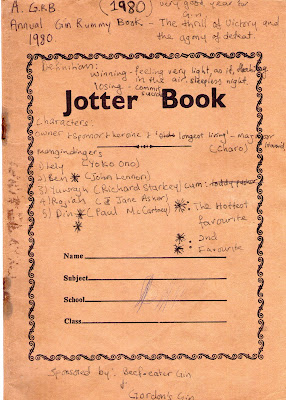 A. GRB (1980) very good year for
Gin
Annual Gin Rummy Book - The thrill of Victory and
1980 the agony of defeat.
Definitions:
winning - feeling very light, as if, floating
in the air. sleepless night.
losing - commit
suicide
Jotter Book
Characters:
owner, sponsor, heroine & longest living - Mariam
(Charo)
mangindingers
1) Lely (Yoko Ono)
2) Ben * (John Lennon)
3) (Richard Starkey)
4) Rogiah (Jane Asher)
5) Din * (Paul McCartney)
* : The Hottest
favourite
* : 2nd
favourite
Name
Subject
School
Class
Sponsored by: Beefeater Gin
&
Gordon's Gin